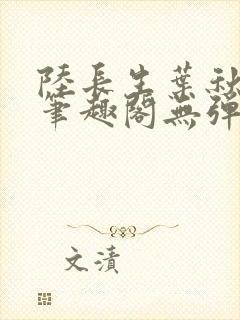 陸長生葉秋
筆趣閣無彈
文漬